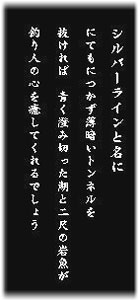 シルバーラインと名に
にてもにつかず薄暗いトンネルを
抜ければ 青く澄み切った湖と二尺の岩魚が
釣り人の心を癒してくれるでしょう